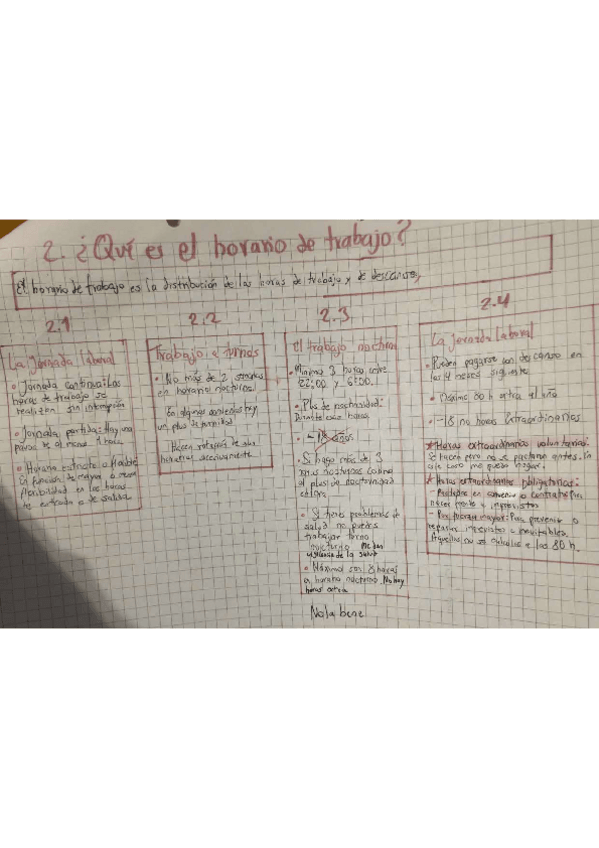 2. ¿Qué es el horario de trabajo?
El horario de trabajo es la distribución de las horas de trabajo y de descanso,
2.1
La Jornada laboral
• Jornada continua: Las
horas de trabajo se
realizan sin
• Jornada partida: Hay una
pausa de al menos 1 hora
• Horario estricto o flexible
En función de mayor o menor
flexibilidad en las horas
de entrada o de salida
2.2
Trabajo a turnos
• No más de 2 semanas
en horario nocturno
En algunos convenios hay
un plus de
Hacen rotación de sus
2.3
El trabajo nocturno
• Mínimo 3 horas entre
22:00 y 6:00.
• Plus de nocturnidad:
Durante esas horas
• -18 años
• Si hago más de 3
horas nocturnas cobro
el plus de nocturnidad
• Si tienes problemas de
salud no puedes
trabajar turno
nocturno
vigilancia de la salud
• Máximo son 8 horas
en horario nocturno. No hay
horas extra
Nota bene
2.4
La Jornada laboral
• Pueden pagarse con descanso en
los 4 meses siguiente
• Máximo 80 h extra el año
• -18 no horas Extraordinarias
★ Horas extraordinarias voluntarias:
Se hacen pero no se pactaron antes. En
este caso me puedo negar.
★ Horas extraordinarias obligatorias:
- Pactadas en convenio o contrato
hacer frente a imprevistos
- Por fuerza mayor: Para prevenir o
reparar imprevistos inevitables.
Aquellas no se calculan a las 80 h.